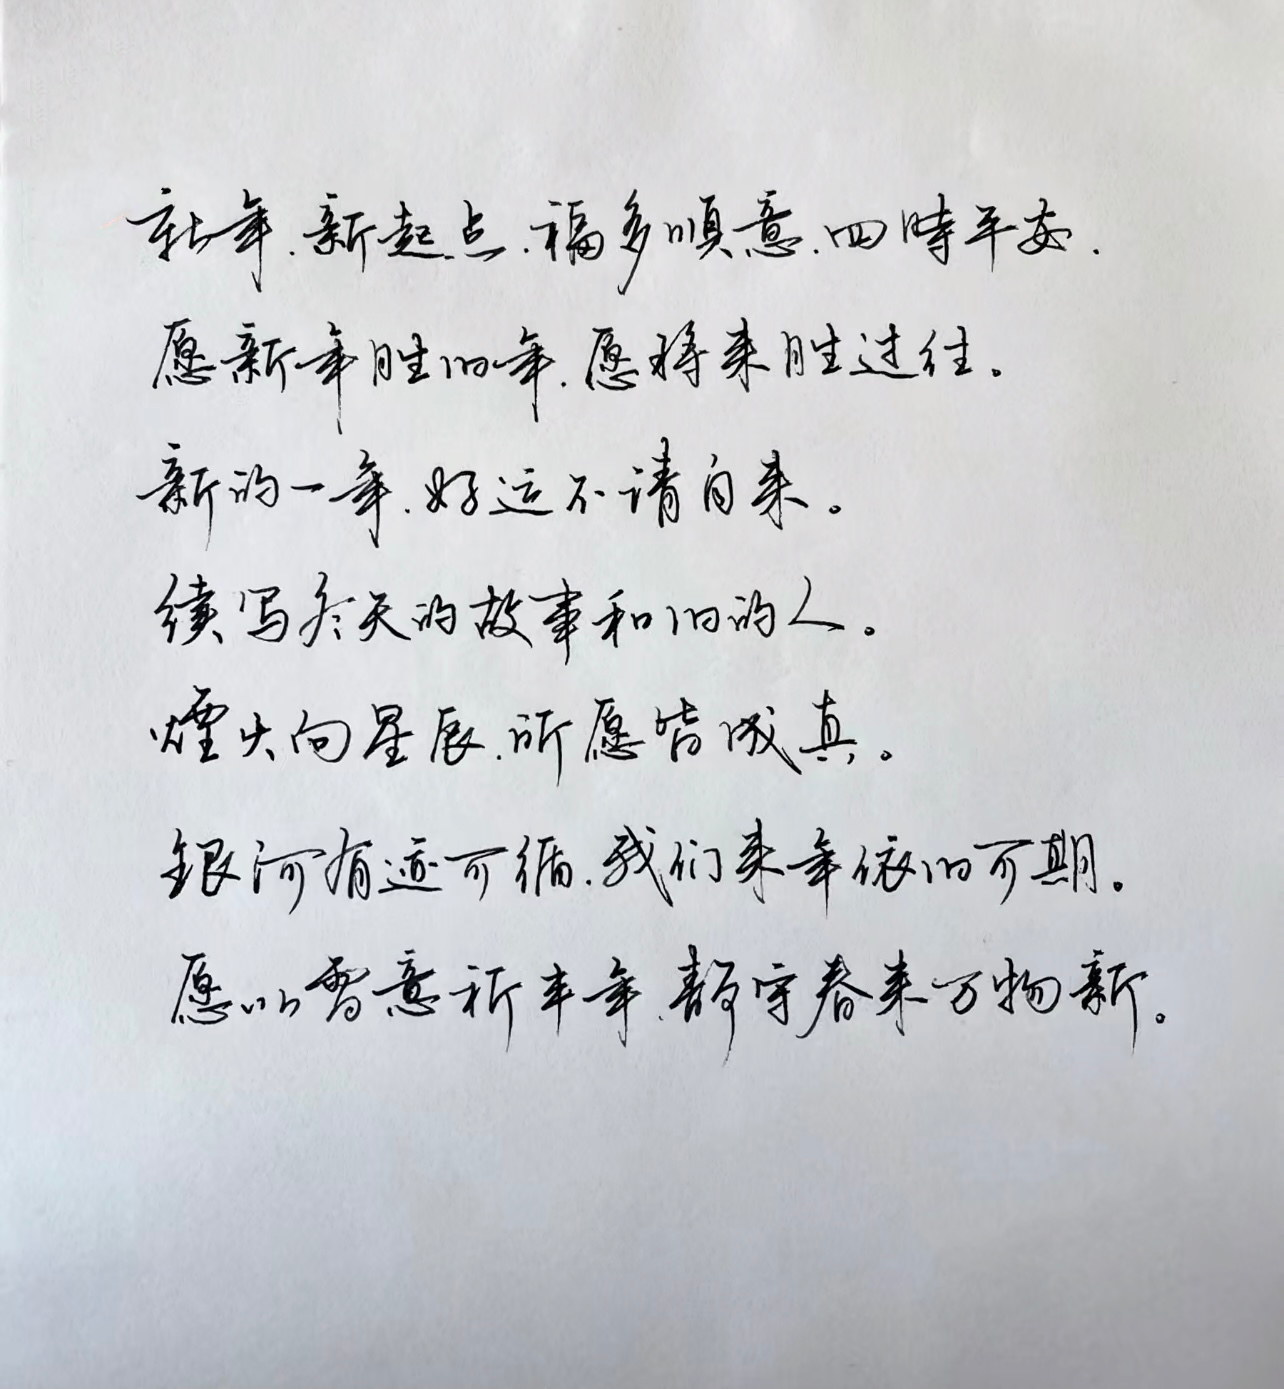 新年、新起点、福多順意、四時平安、
愿新年胜旧年、愿将来胜过往。
新的一年、好运不请自来。
续写冬天的故事和旧的人。
煙火向星辰、所愿皆成真。
銀河有迹可循、我们来年依旧可期。
愿以雪意祈丰年、静守春来万物新。